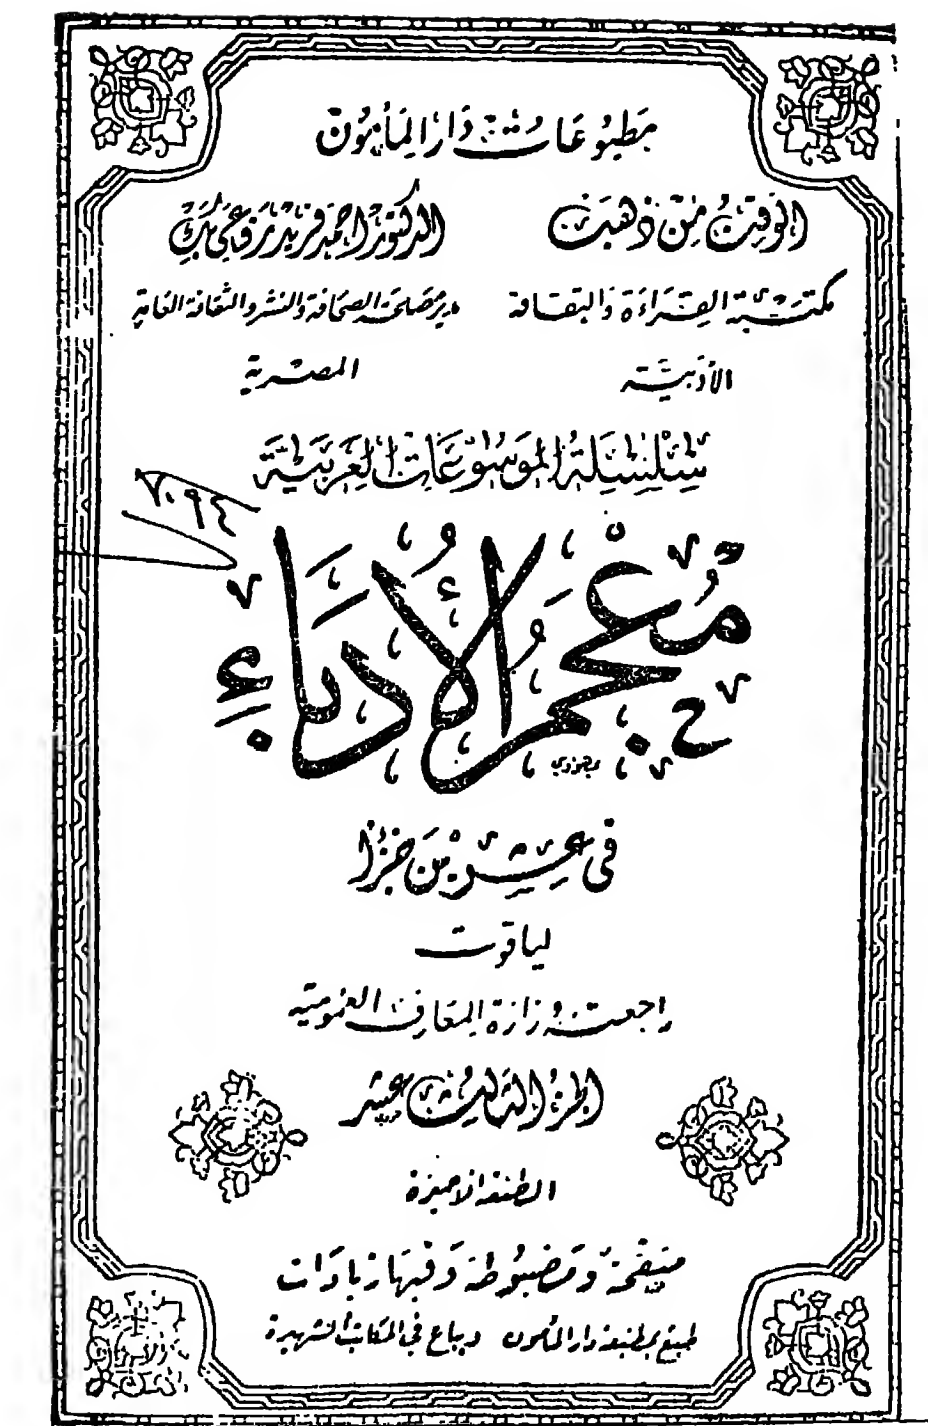 مطبوعات دار المأمون
الوقت من ذهب
الدكتور أحمد فريد رفاعي بك
مكتبة القراءة والثقافة
الأدبية
مدير مصلحة الصحافة والنشر والثقافة العامة
المصرية
سلسلة الموسوعات العربية
٧٠٩٤
معجم الأدباء
في عشرين جزءا
لياقوت
راجعته وزارة المعارف العمومية
الجزء الثالث عشر
الطبعة الأخيرة
منقحة ومضبوطة وفيها زيادات
طبع بمطبعة دار المأمون ويباع في المكاتب الشهيرة